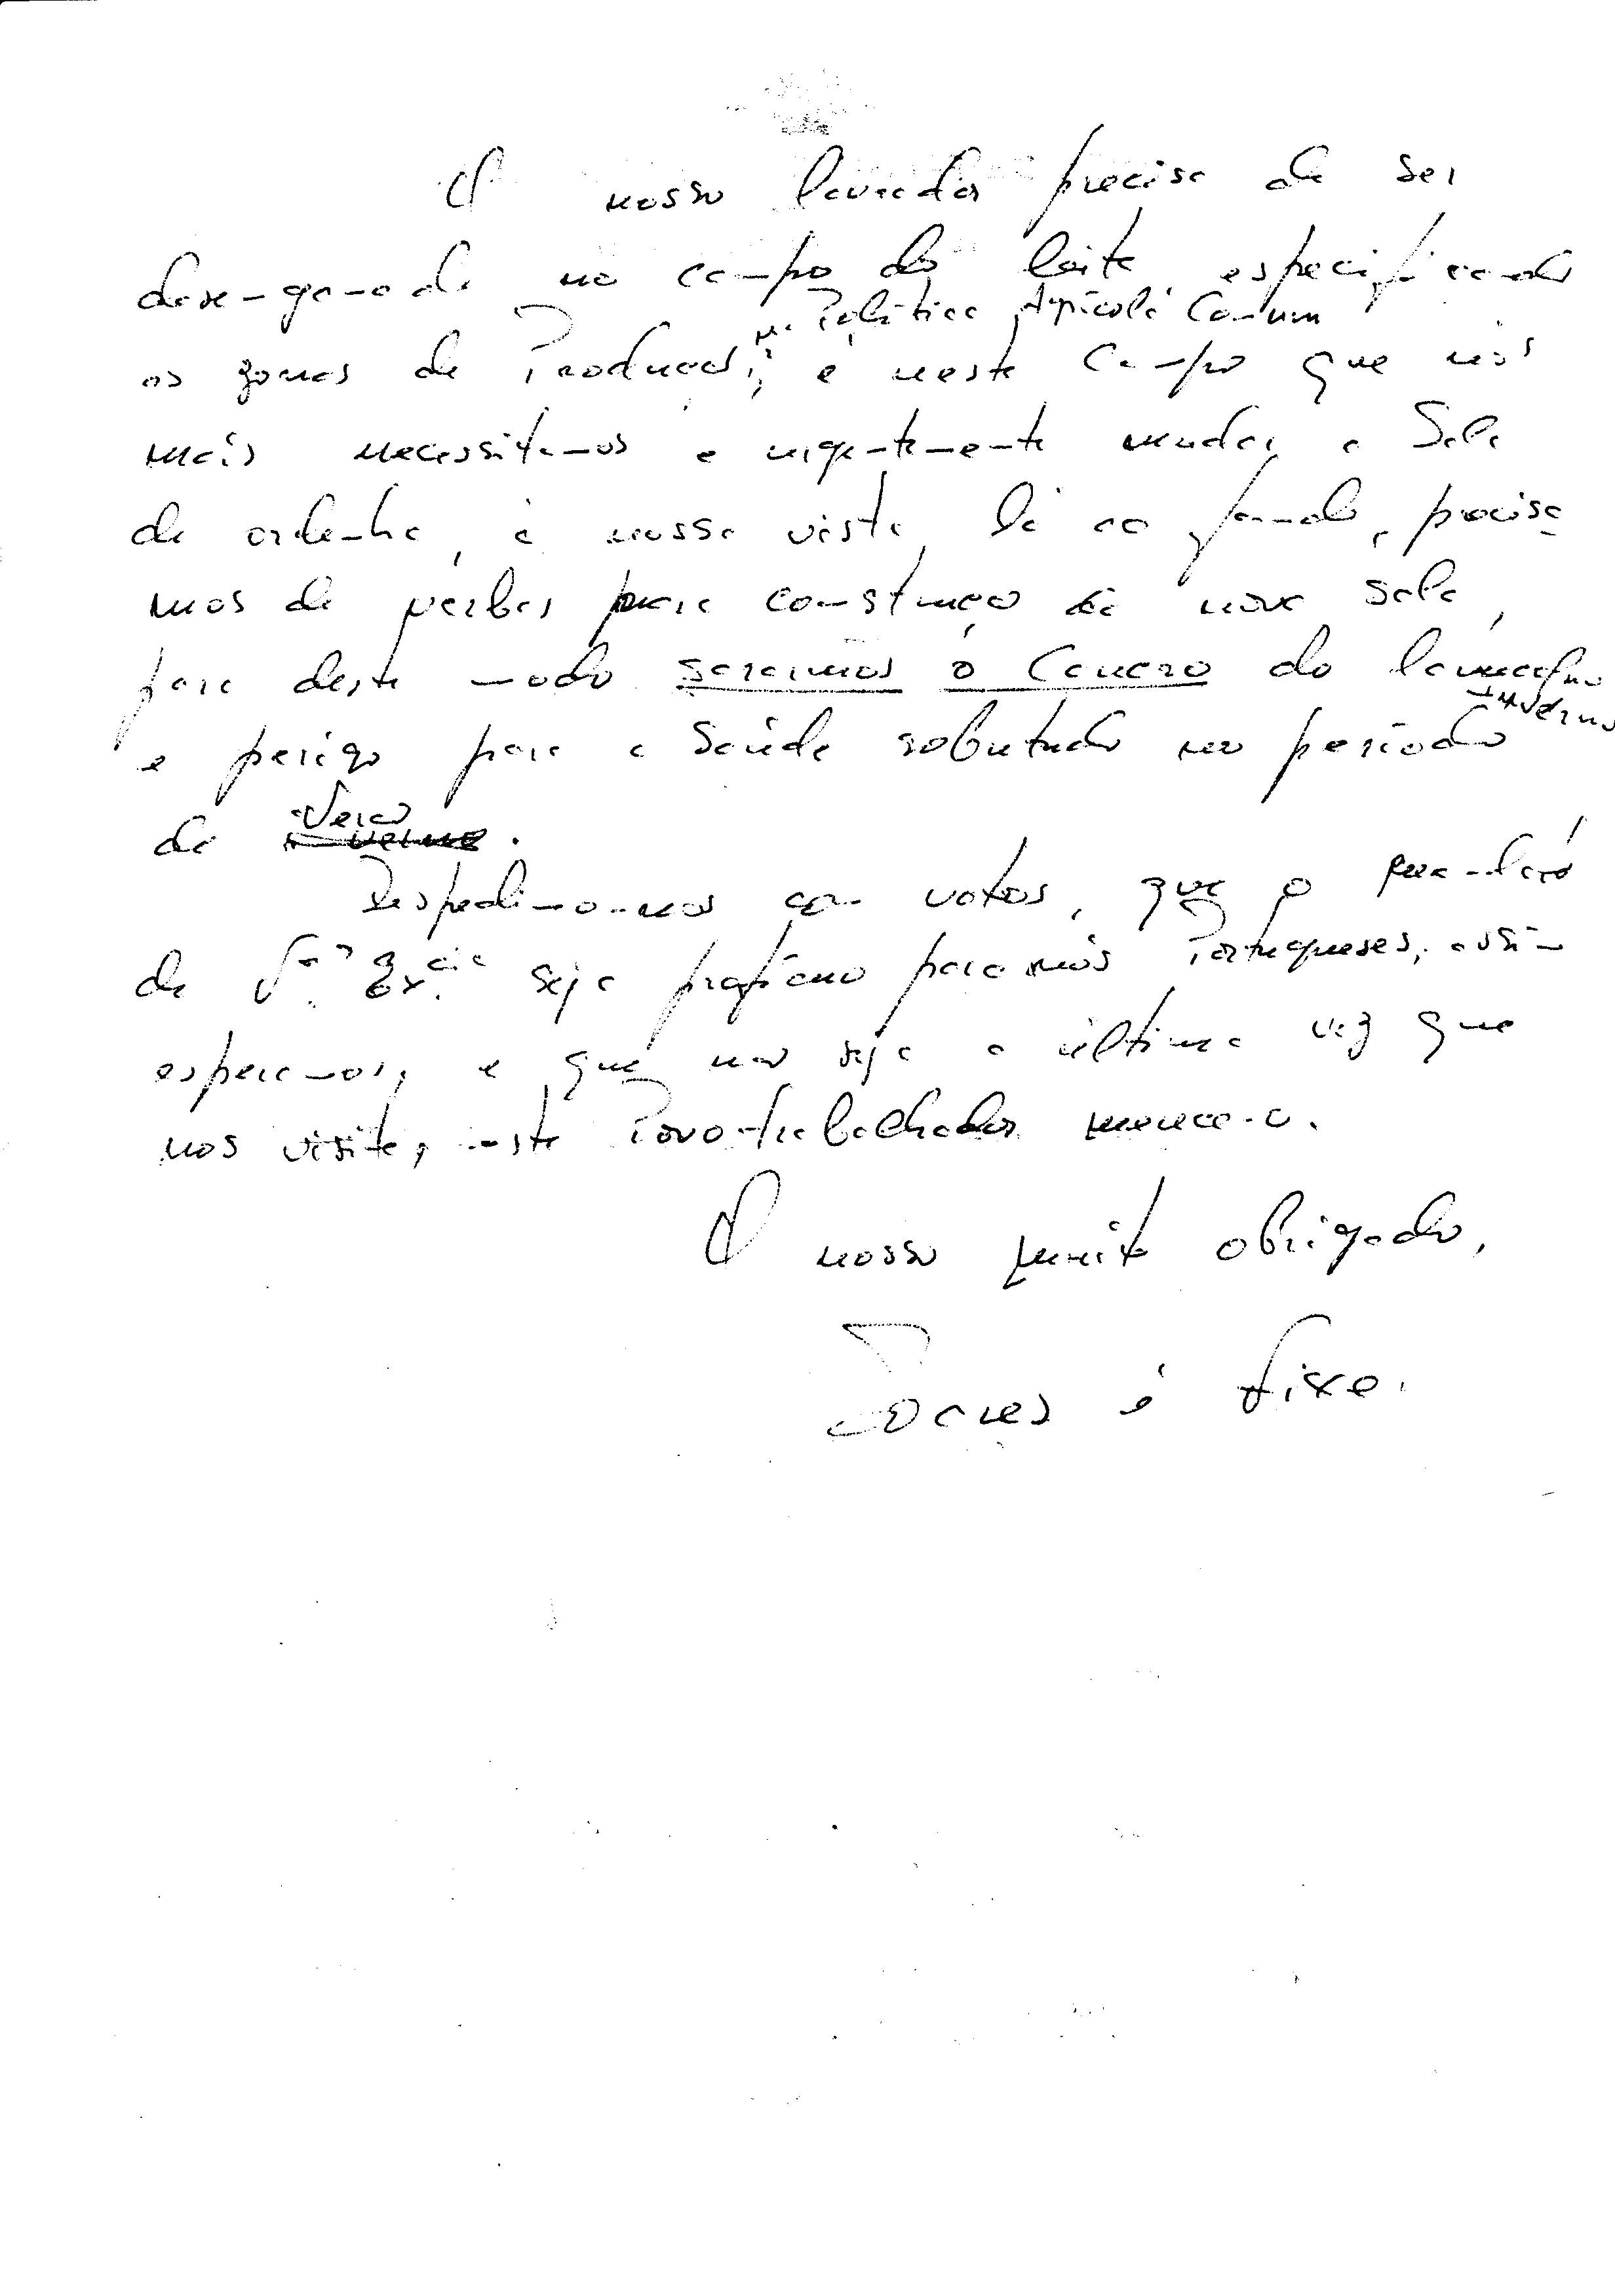 O nosso lavrador precisa de ser
desenganado no campo do leite especificando
na Política Agrícola Comum
as zonas de Produção, é neste campo que nós
mais necessitamos e urgentemente mudar a Sala
de ordenha, à nossa vista lá ao fundo, precisa
mos de verbas para construção da nova sala,
para deste modo sararmos o Cancro do lamaçal no
Inverno
e perigo para a Saúde sobretudo no período
de Verão.
Despedimo-nos com votos, que o mandato
de V.ª Ex.cia seja profícuo para nós Portugueses, assim
esperamos, e que não seja a última vez que
nos visite, este Povo trabalhador merece-o.
O nosso muito obrigado,
Soares é fixe.